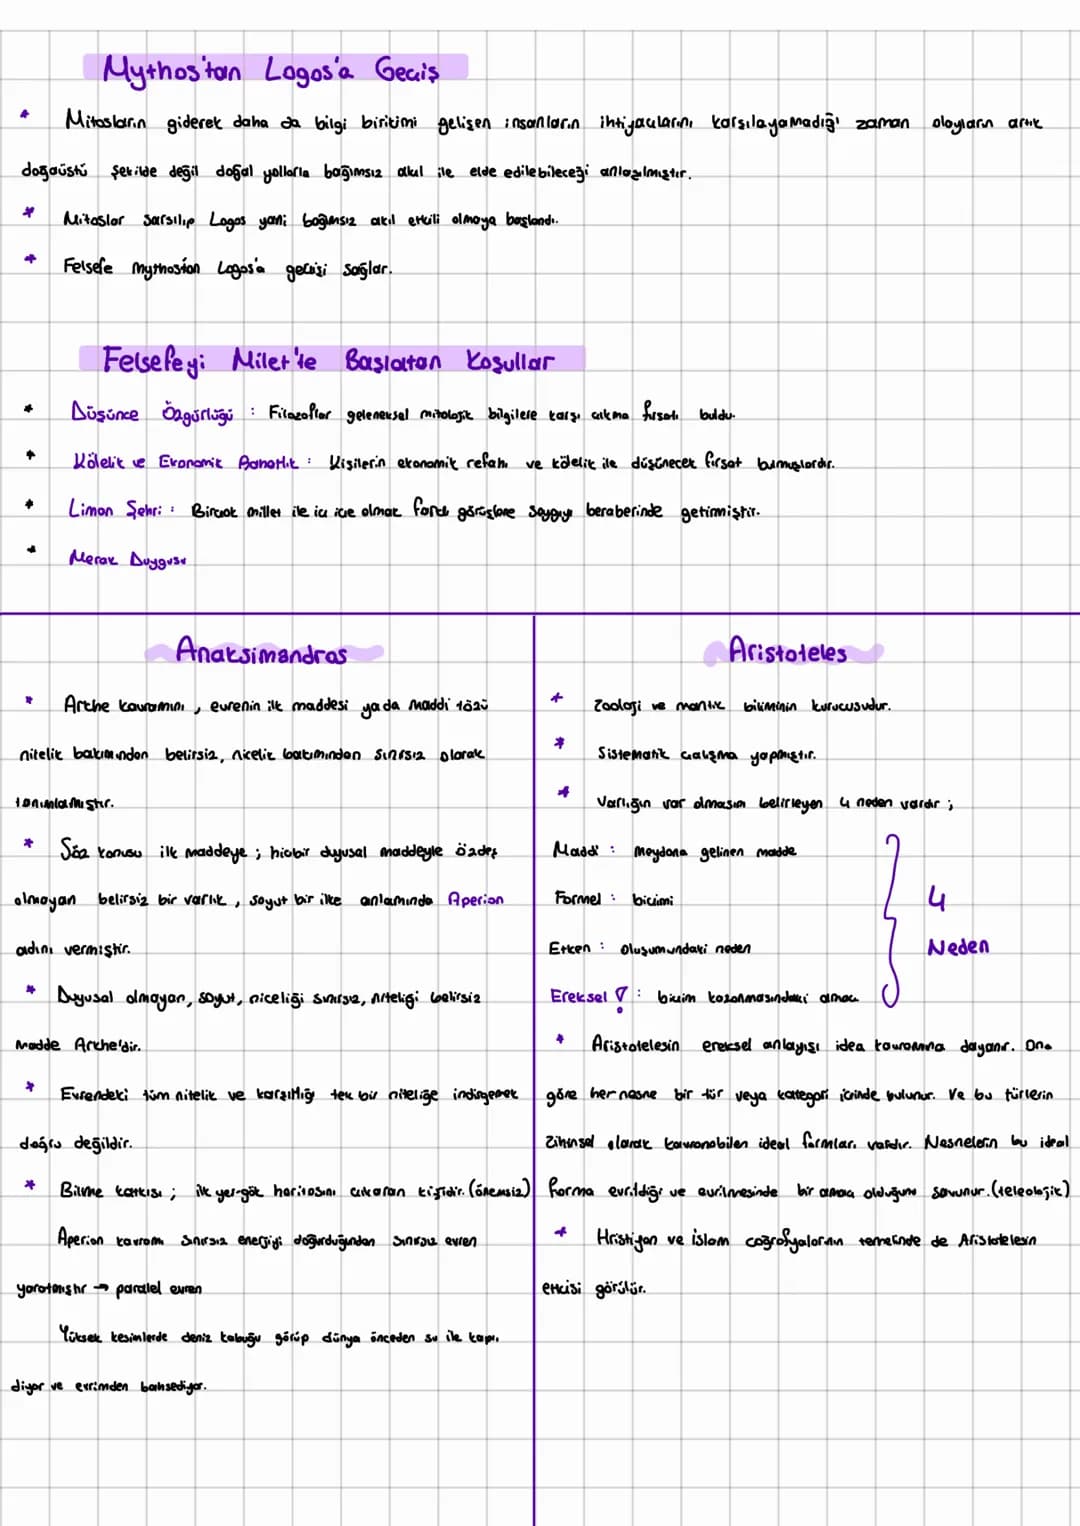 Mythos'tan Logos'a Geçiş
* Mitosların giderek daha da bilgi birikimi gelişen insanların ihtiyaçlarını karşılayamadığı zaman olayların artık
doğaüstü şekilde değil doğal yollarla bağımsız akıl ile elde edilebileceği anlaşılmıştır.
* Mitoslar sarsılıp Logos yani bağımsız akıl etkili olmaya başlandı.
* Felsefe mythostan Logos'a geçişi sağlar.
Felsefeyi Milet'te Başlatan Koşullar
* Düşünce Özgürlüğü : Filozoflar geleneksel mitolojik bilgilere karşı çıkma fırsatı buldu.
* Kölelik ve Ekonomik Rahatlık : Kişilerin ekonomik refahı ve kölelik ile düşünecek fırsat bulmuşlardır.
* Liman Şehri : Birçok millet ile iç içe olmak farklı görüşlere saygıyı beraberinde getirmiştir.
* Merak Duygusu
Anaksimandros
* Arche kavramını , evrenin ilk maddesi ya da maddi tözü
nitelik bakımından belirsiz, nicelik bakımından sınırsız olarak
tanımlamıştır.
* Söz konusu ilk maddeye ; hiçbir duyusal maddeyle özdeş
olmayan belirsiz bir varlık , soyut bir ilke anlamında Aperion
adını vermiştir.
* Duyusal olmayan, soyut, niceliği sınırsız, niteliği belirsiz
madde Arche'dir.
* Evrendeki tüm nitelik ve karşıtlığı tek bir niteliğe indirgemek
doğru değildir.
* Bilime katkısı ; ilk yer-gök haritasını çıkaran kişidir. (önemsiz)
Aperion kavramı sınırsız enerjiyi doğurduğundan sınırsız evren
yaratmıştır → paralel evren
Yüksek kesimlerde deniz kabuğu görüp dünya önceden su ile kaplı
diyor ve evrimden bahsediyor.
Aristoteles
* Zooloji ve mantık biliminin kurucusudur.
* Sistematik çalışma yapmıştır.
* Varlığın var olmasını belirleyen 4 neden vardır ;
Maddi : meydana gelinen madde
Formel : biçimi
Etken : oluşumundaki neden
Ereksel ! : biçim kazanmasındaki amaç
4
Neden
* Aristotelesin ereksel anlayışı idea kavramına dayanır. Ona
göre her nesne bir tür veya kattegori içinde bulunur. Ve bu türlerin
zihinsel olarak kavranabilen ideal formları vardır. Nesnelerin bu ideal
forma evrildiği ve evrilmesinde bir amaç olduğunu savunur. (teleolojik)
* Hristiyan ve islam coğrafyalarının temelinde de Aristotelesin
etkisi görülür.